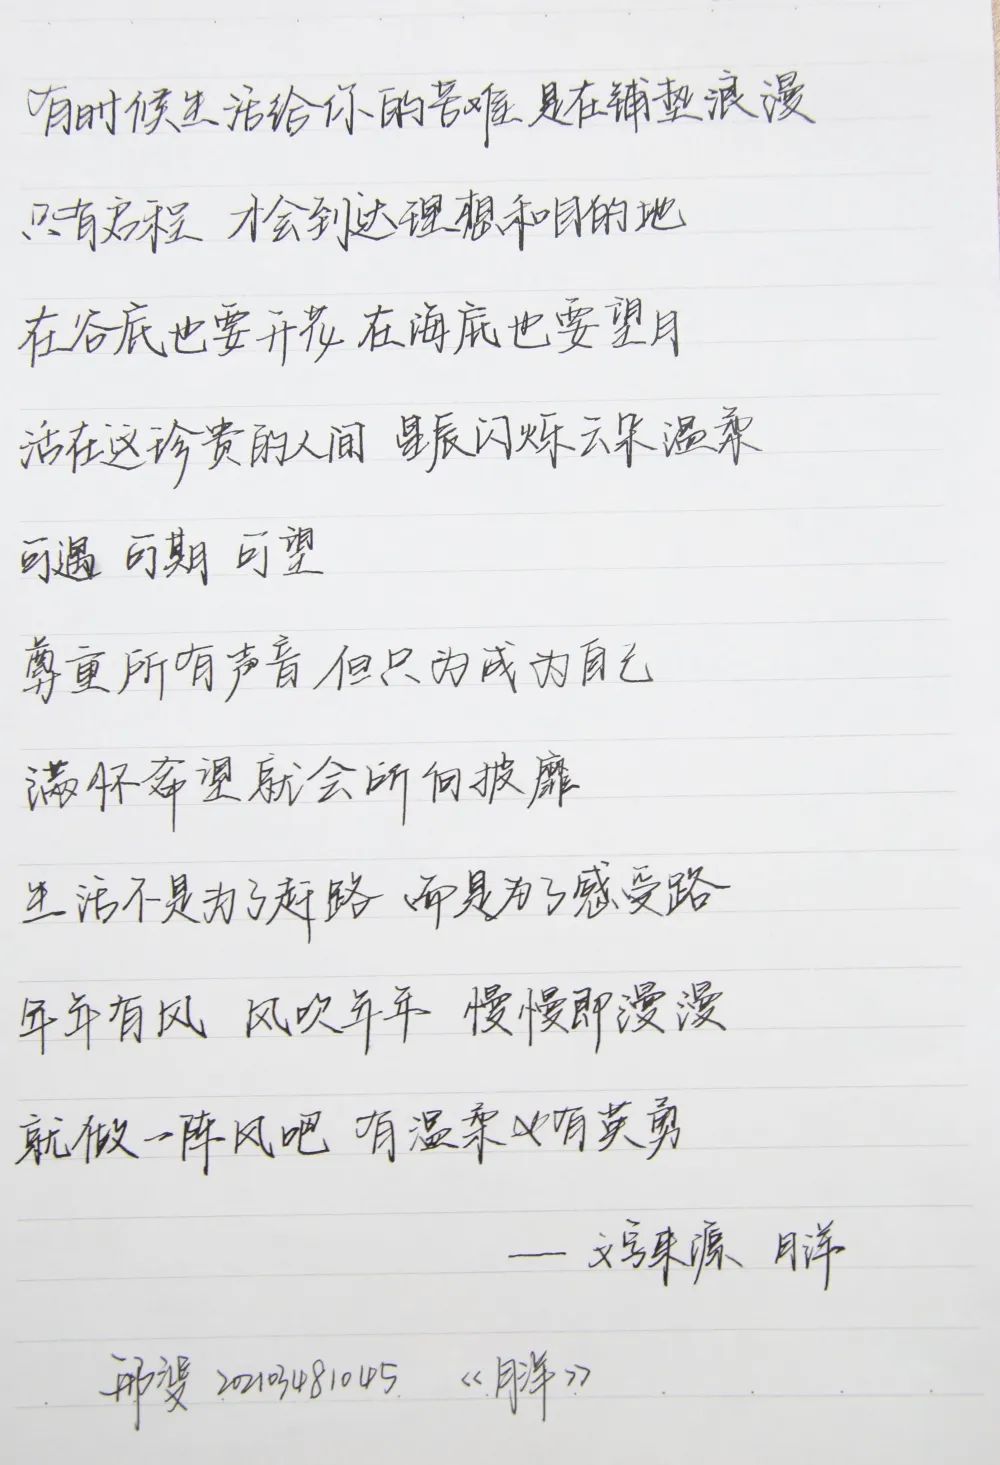 有时候生活给你的苦难 是在铺垫浪漫
只有启程 才会到达理想和目的地
在谷底也要开花 在海底也要望月
活在这珍贵的人间 星辰闪烁云朵温柔
可遇 可期 可望
尊重所有声音 但只为成为自己
满怀希望就会所向披靡
生活不是为了赶路 而是为了感受路
年年有风 风吹年年 慢慢即漫漫
就做一阵风吧 有温柔也有英勇
—— 文字来源 月洋
202103481045 《月洋》